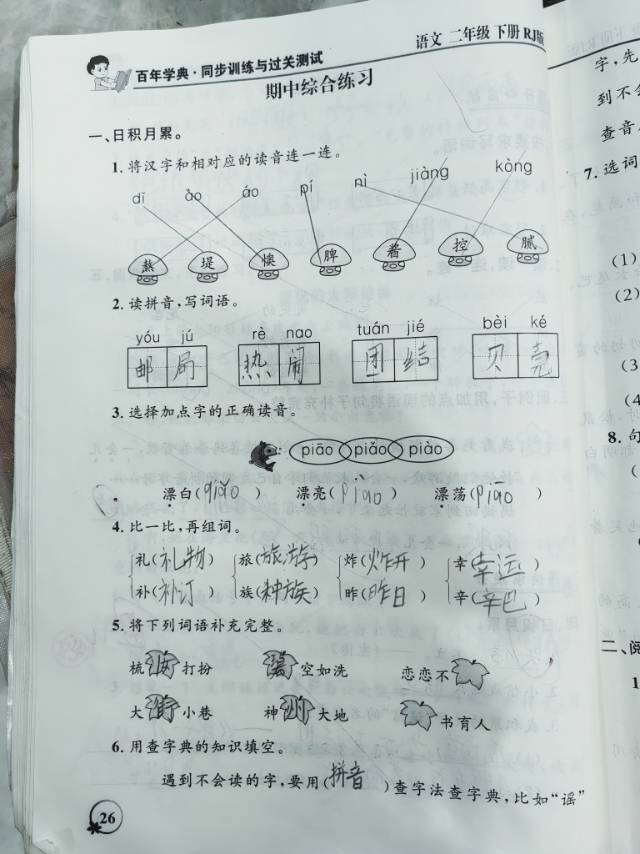 百年学典·同步训练与过关测试
语文 二年级 下册 RJ版
期中综合练习
一、日积月累。
1. 将汉字和相对应的读音连一连。
dī ào áo pí nì jiàng kòng
熬 堤 懊 脾 酱 控 腻
2. 读拼音,写词语。
yóu jú rè nao tuán jié bèi ké
邮局 热闹 团结 贝壳
3. 选择加点字的正确读音。
piāo piǎo piào
漂白(piǎo) 漂亮(piào) 漂荡(piāo)
4. 比一比,再组词。
礼(礼物) 旅(旅游) 炸(炸开) 幸(幸运)
补(补订) 族(种族) 昨(昨日) 辛(辛巴)
5. 将下列词语补充完整。
梳 打扮 空如洗 恋恋不
大街小巷 神州大地 书育人
6. 用查字典的知识填空。
遇到不会读的字,要用(拼音)查字法查字典,比如“谣”
26
字,先
到不会
查音
7. 选词
(1)
(2)
(3
(4
8. 句
(
二、阅
1